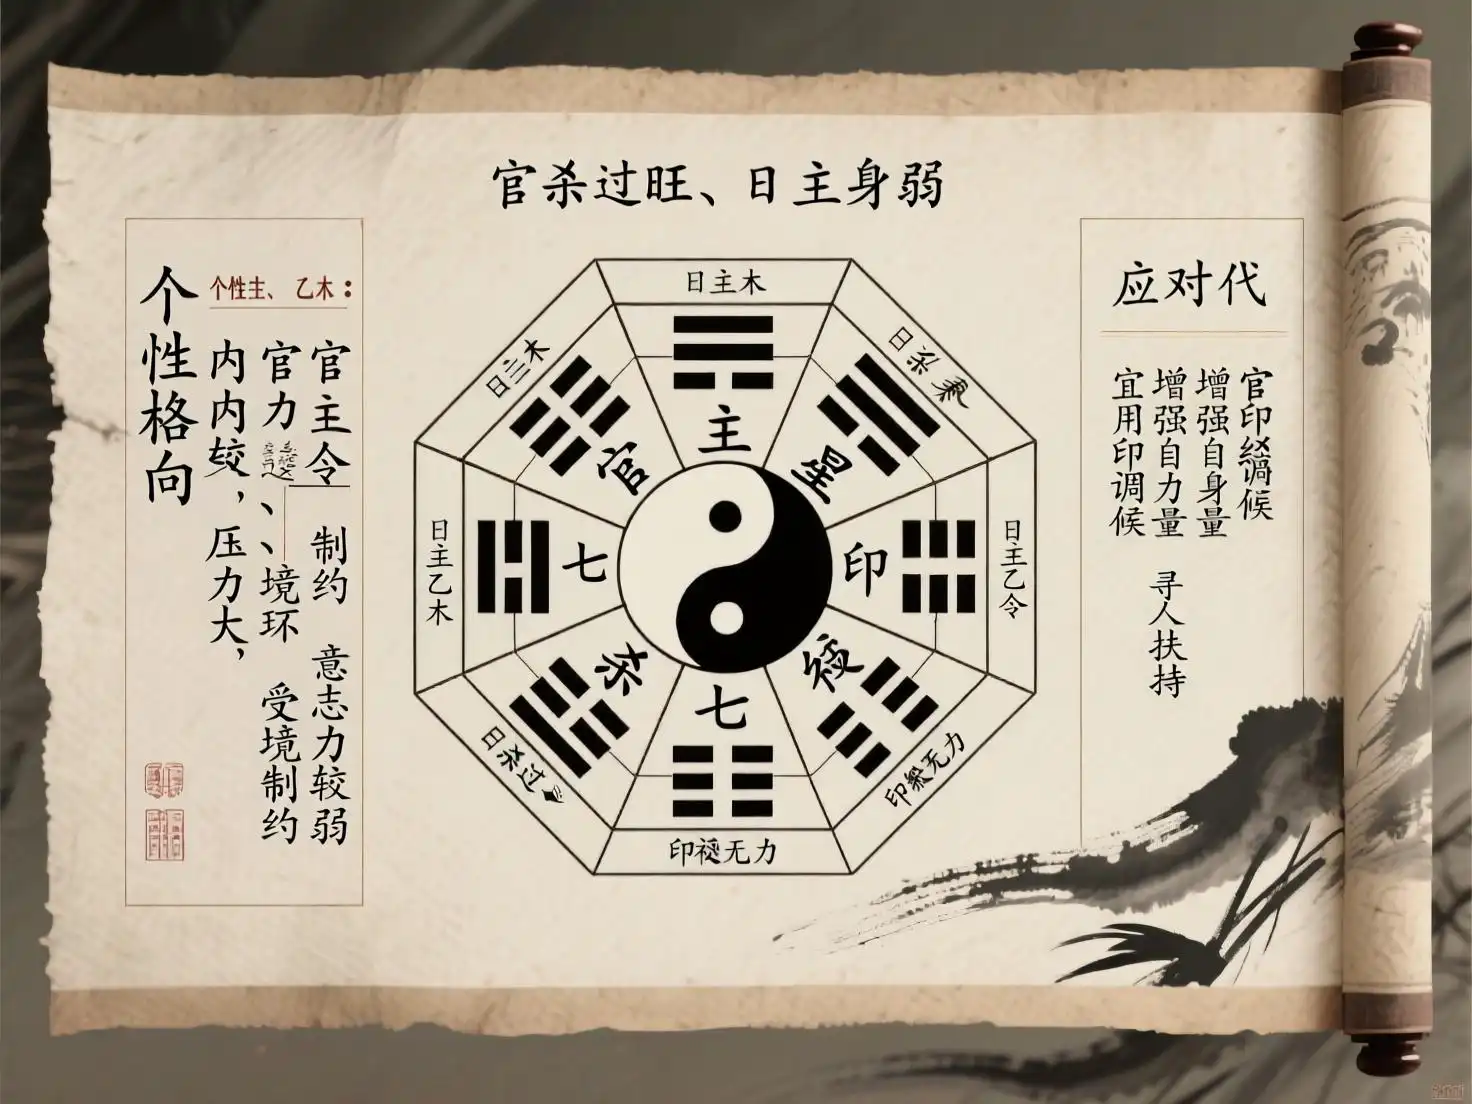 官杀过旺、日主身弱
个性格向
个性主、乙木：
官主令 制约 意志力较弱
官力 、、境环 受境制约
内内较，压力大，
日主木
日主乙木
日主乙令
印 无力
印 无力
日杀过
主
星
印
七
杀
七
官
应对代
官印 调候
增强自身量
增强自力量 寻人扶持
宜用印调候